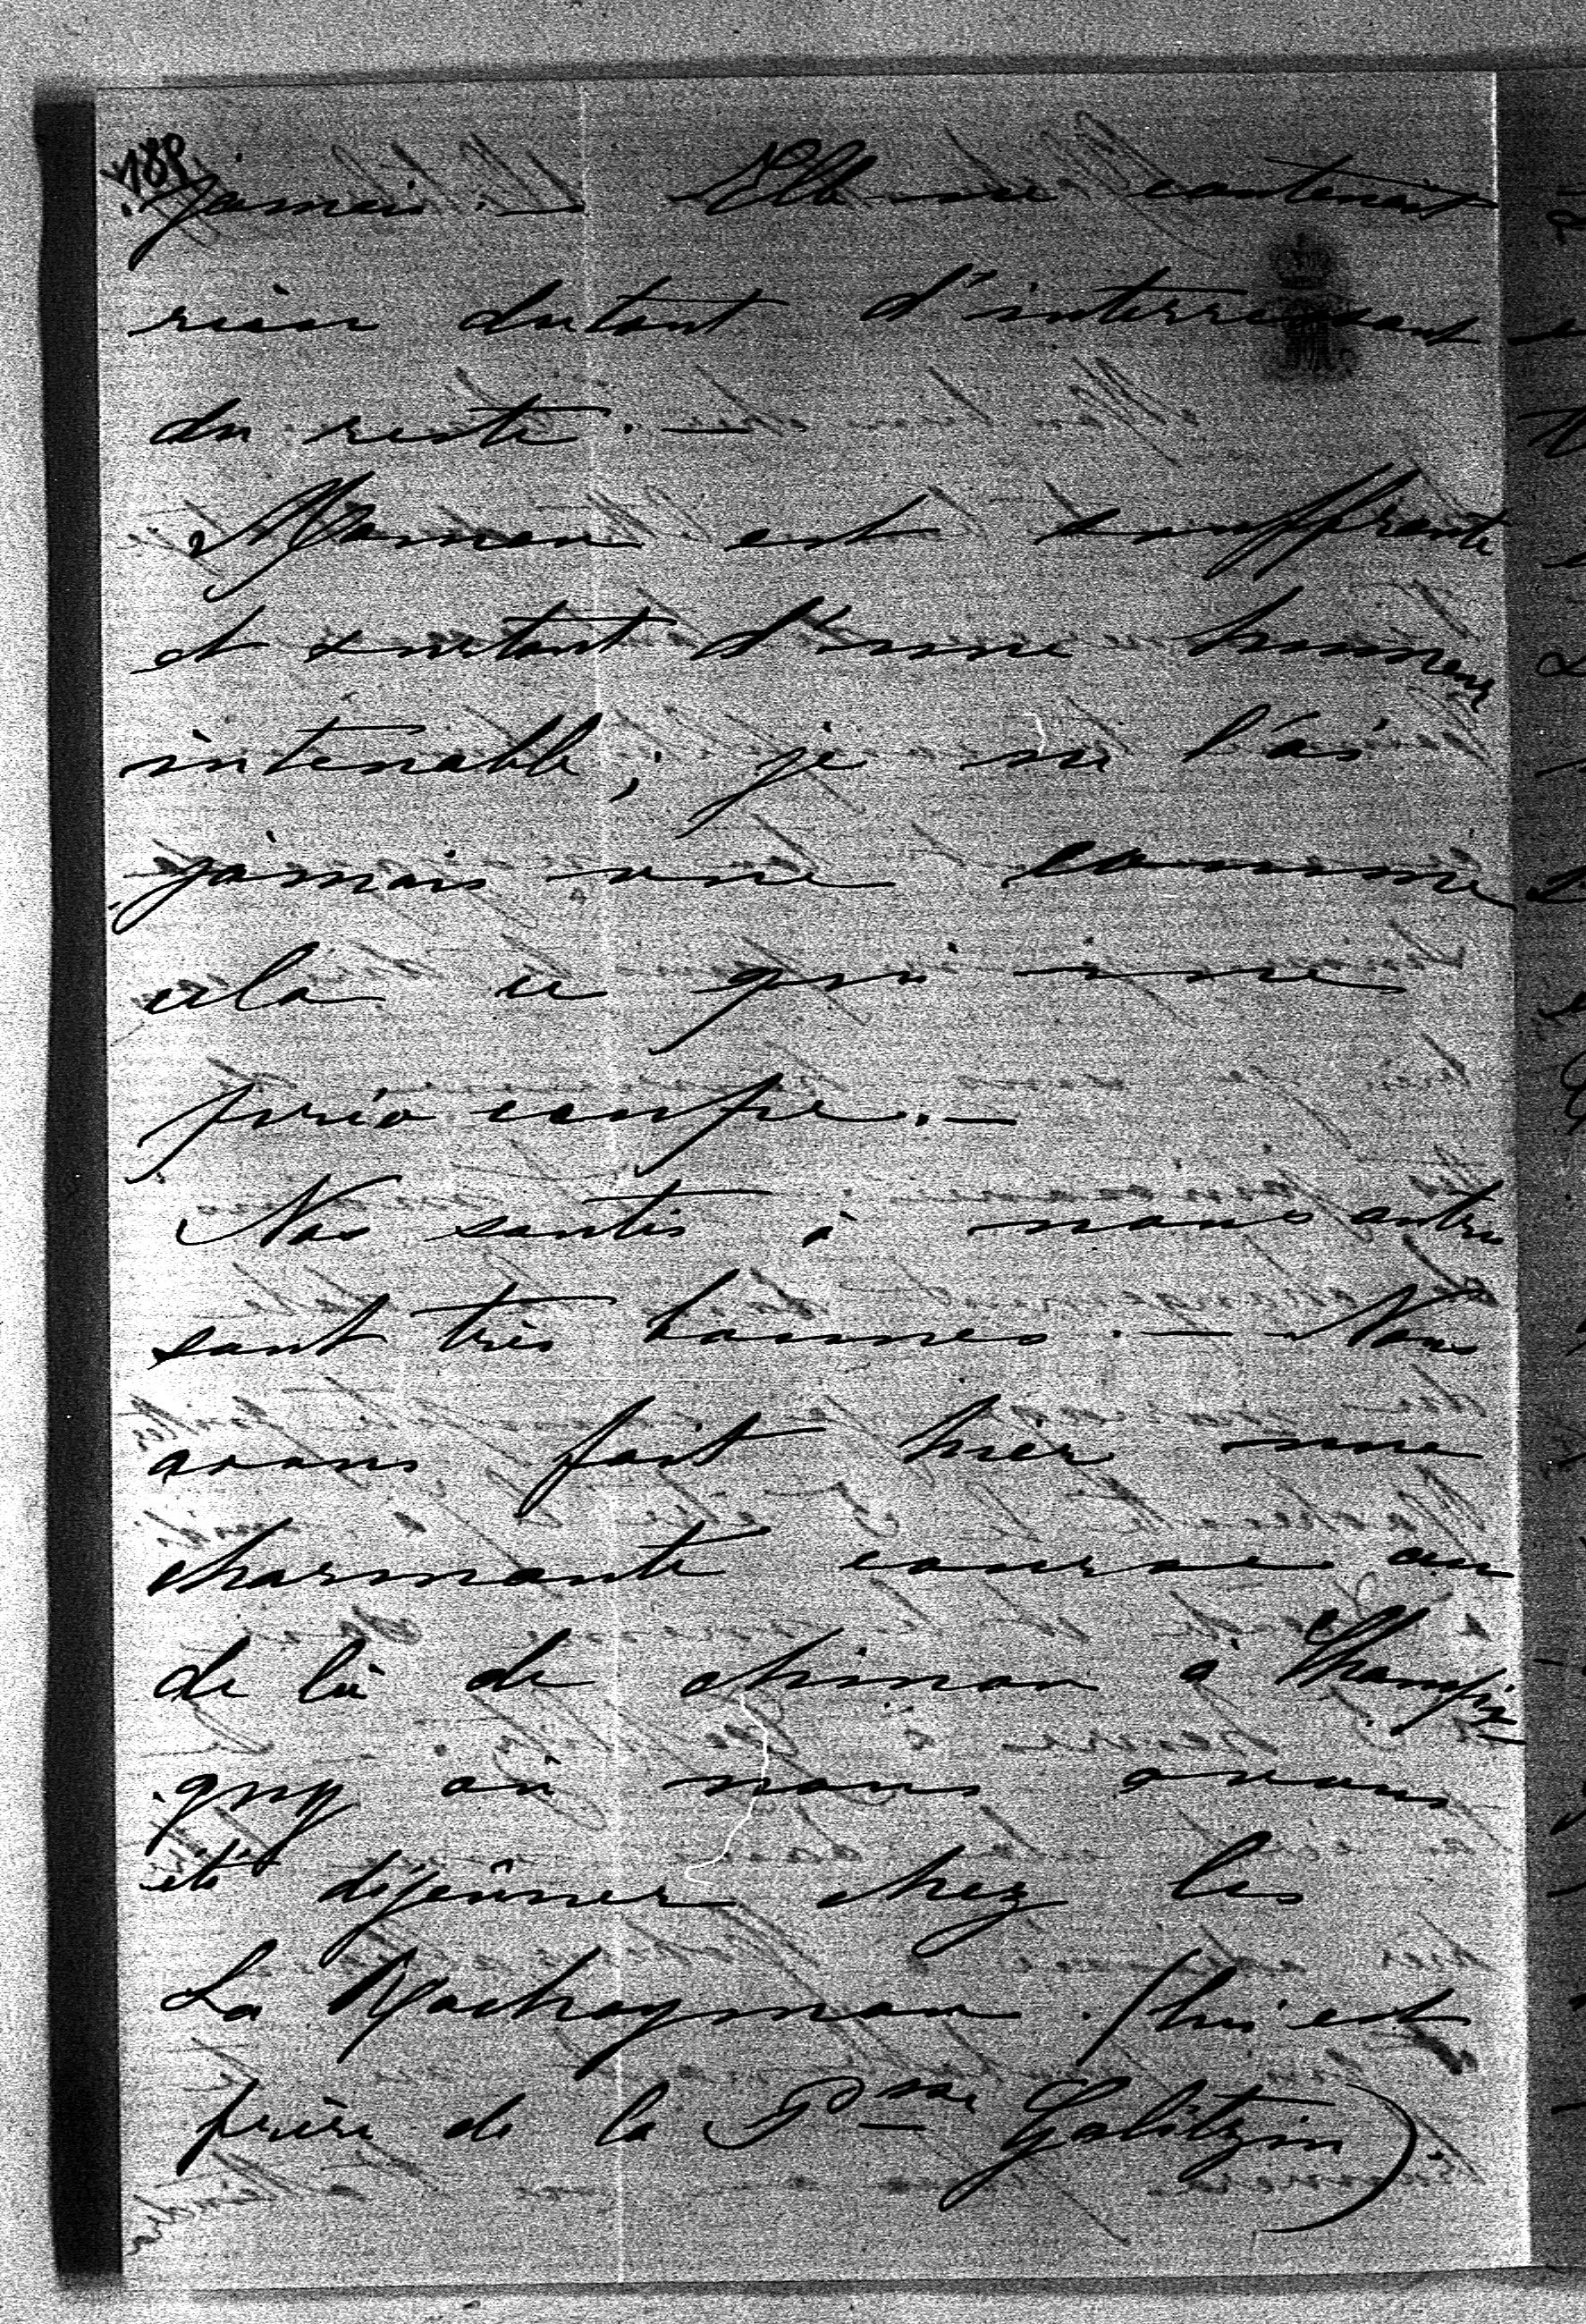 jamais. — Elle ne contenait
rien dutout d'interressant
du reste. —
Maman est souffrante
et surtout d'une humeur
intenable; je ne l'ai
jamais vue comme
cela ce qui me
préoccupe. —
Nos santés à nous autres
sont très bonnes. — Nous
avons fait hier une
charmante course au
de là de chinon à Champi
gny où nous avons
été déjeûner chez les
La Rochaymon (lui est
frère de la Psse Galitzin)